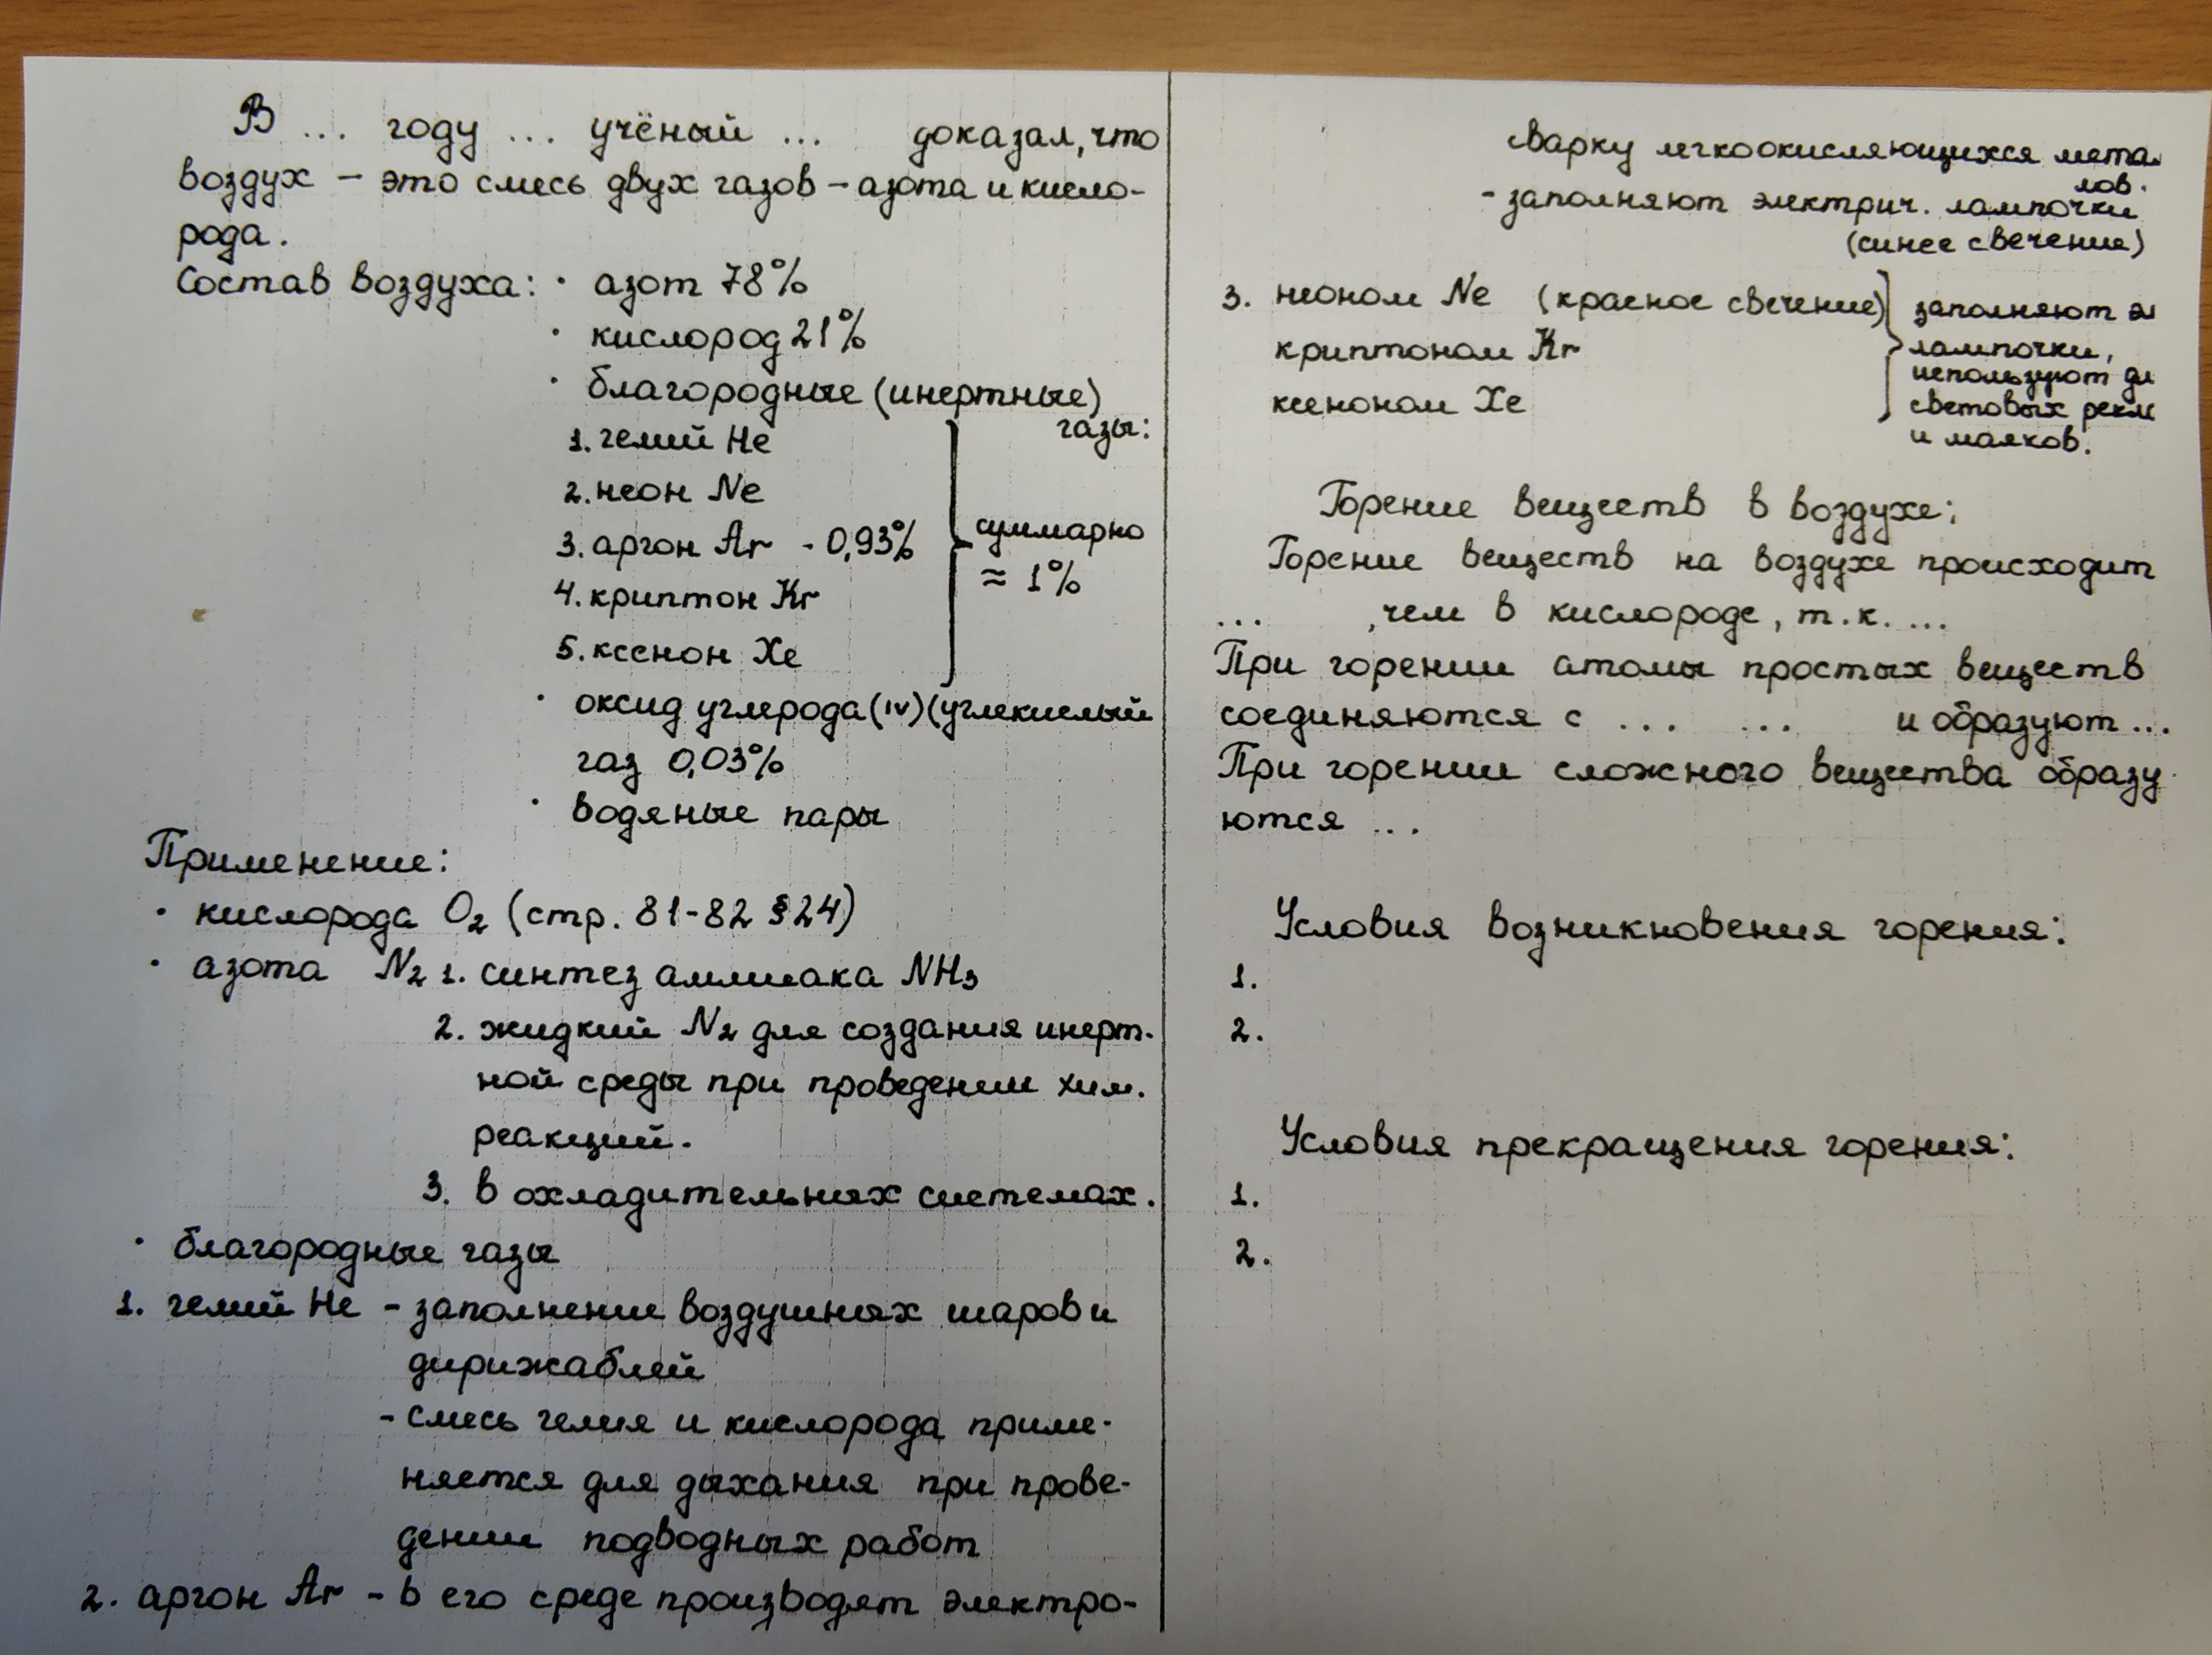 В ... году ... учёный ... доказал, что
воздух – это смесь двух газов – азота и кисло-
рода.
Состав воздуха: · азот 78%
· кислород 21%
· благородные (инертные)
газы:
1. гелий He
2. неон Ne
3. аргон Ar - 0,93%
4. криптон Kr
5. ксенон Xe
суммарно
≈ 1%
· оксид углерода (IV) (углекислый
газ 0,03%
· водяные пары
Применение:
· кислорода O₂ (стр. 81-82 §24)
· азота N₂ 1. синтез аммиака NH₃
2. жидкий N₂ для создания инерт-
ной среды при проведении хим.
реакций.
3. в охладительных системах.
· благородные газы
1. гелий He - заполнение воздушных шаров и
дирижаблей
- смесь гелия и кислорода приме-
няется для дыхания при прове-
дении подводных работ
2. аргон Ar - в его среде производят электро-
сварку легкоокисляющихся метал
лов.
- заполняют электрич. лампочки
(синее свечение)
3. неоном Ne (красное свечение)
криптоном Kr
ксеноном Xe
заполняют эл
лампочки,
используют дл
световых рекл
и маяков.
Горение веществ в воздухе:
Горение веществ на воздухе происходит
... , чем в кислороде, т.к. ...
При горении атомы простых веществ
соединяются с ... ... и образуют ...
При горении сложного вещества образу-
ются ...
Условия возникновения горения:
1.
2.
Условия прекращения горения:
1.
2.